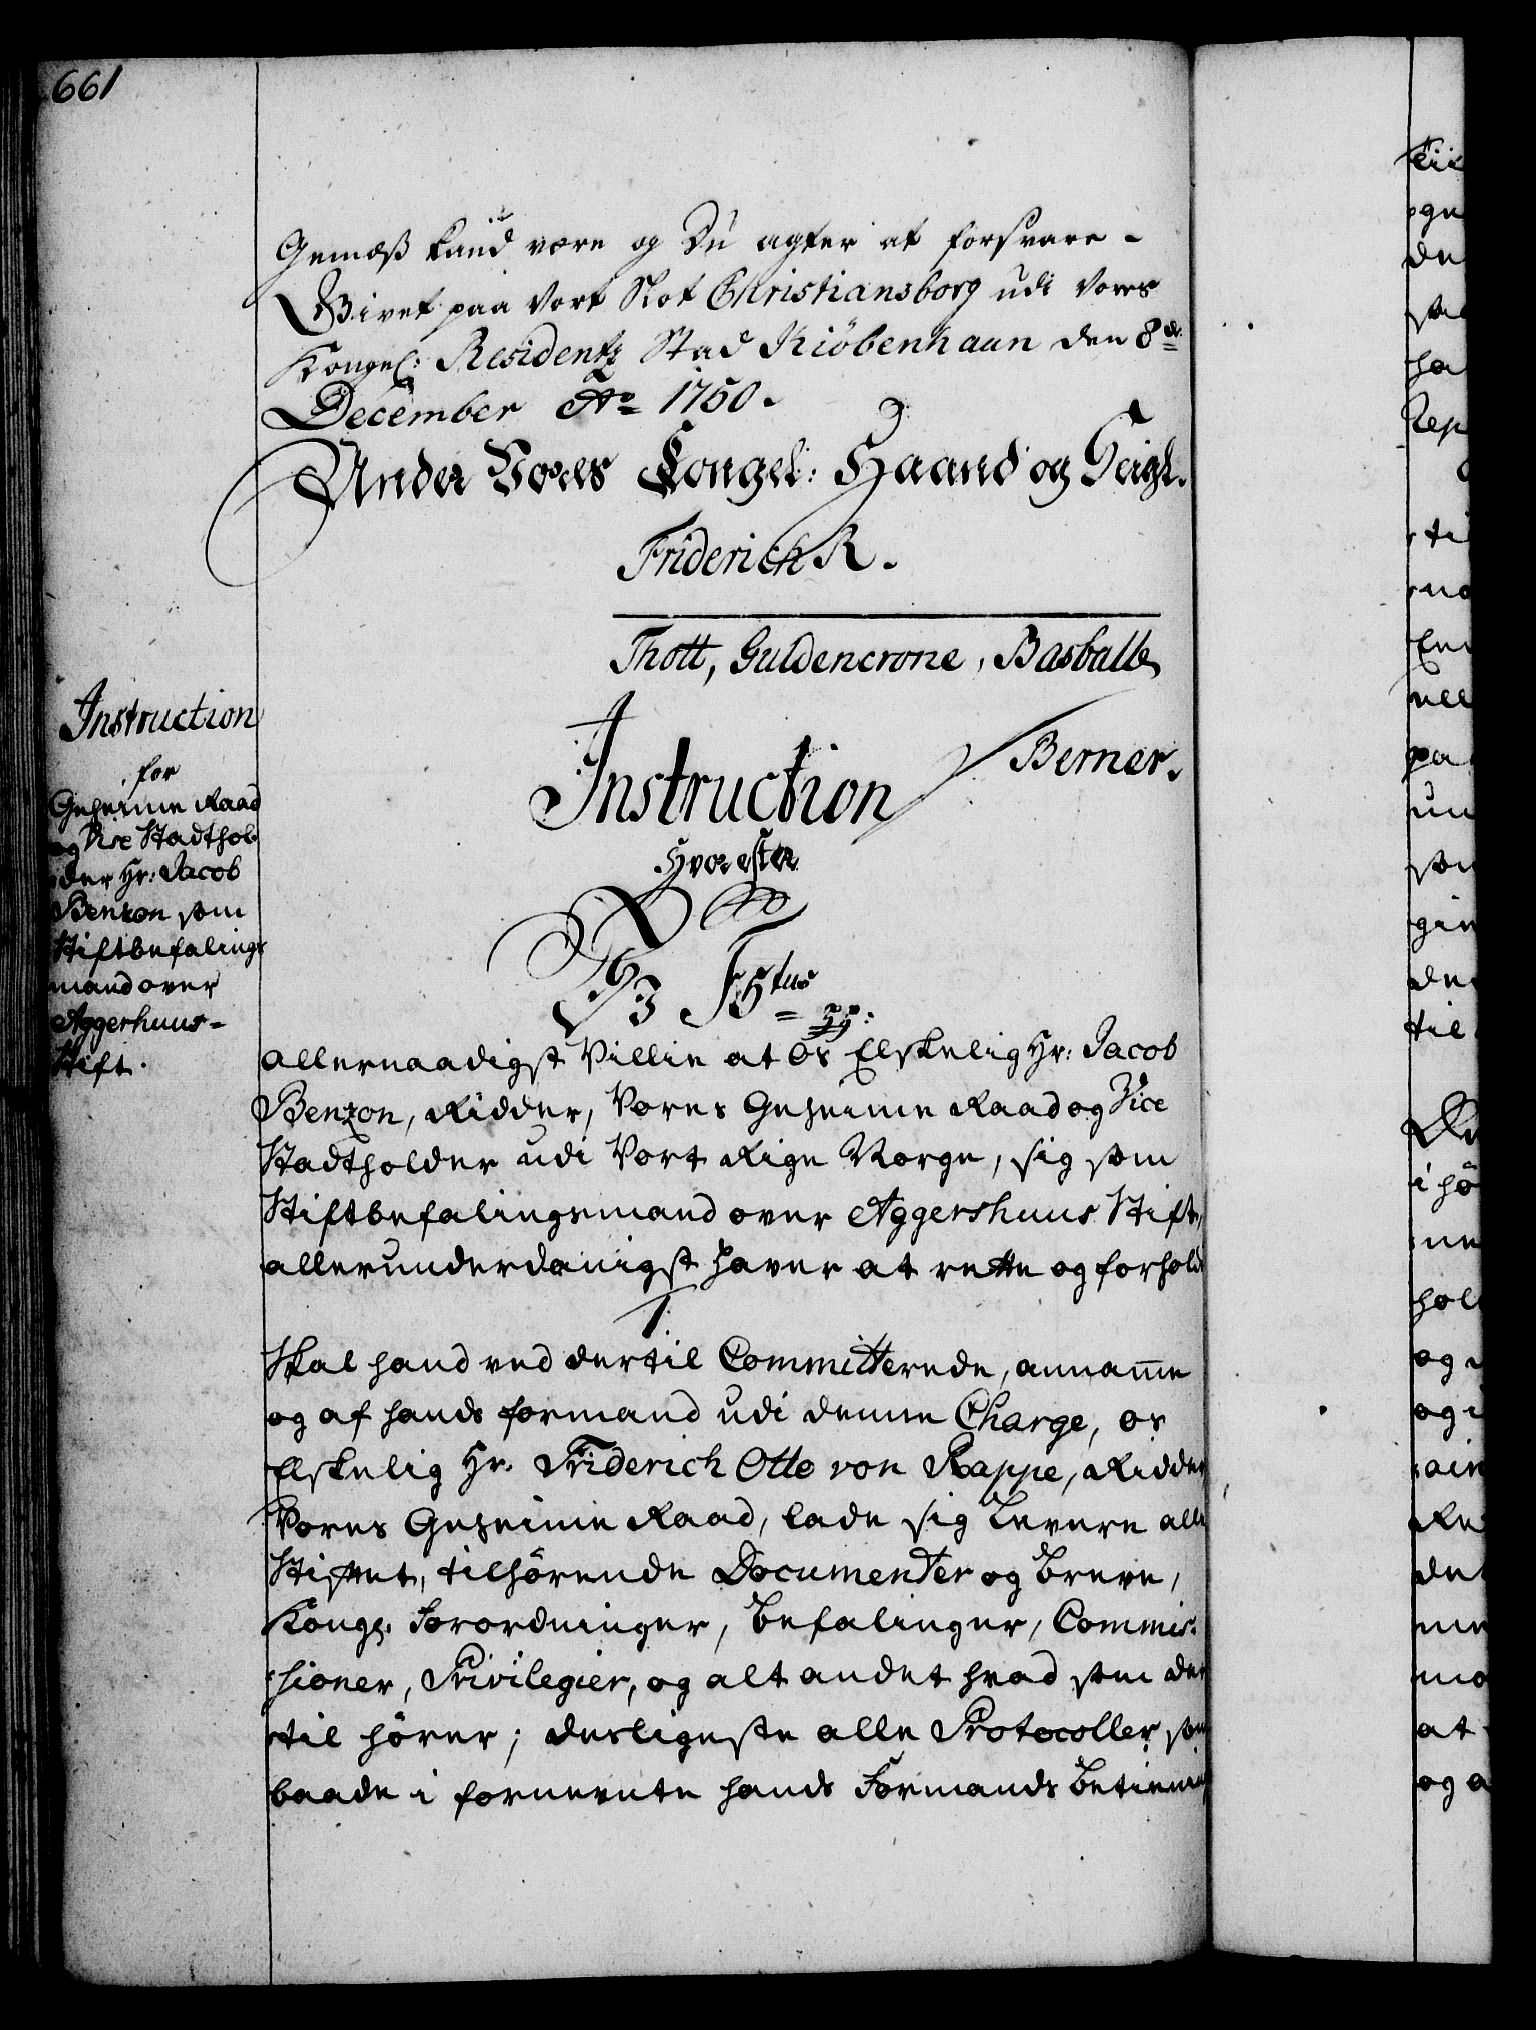 661
Gemæß kand være og Du agter at forsvare -
Givet paa Vort Slot Christiansborg udi Vores
Kongel: Residentz Stad Kiöbenhaun den 8de
December Ao 1750.
Under Vores Kongel: Haand og Seigl.
Friderich R.
Thott, Guldencrone, Basballe
Berner.
Instruction
for
Geheime Raad
og Vice Stadthol-
der Hr: Jacob
Benzon som
Stiftbefalings
mand over
Aggerhuus-
Stift.
Instruction
Hvorefter
Vi F 5tus pp:
allernaadigst Villie at Os Elskelig Hr: Jacob
Benzon, Ridder, Vores Geheime Raad og Vice
Stadtholder udi Vort Rige Norge, sig som
Stiftbefalingsmand over Aggershuus Stift,
allerunderdanigst haver at rette og forholde
1.
Skal hand ved dertil Committerede, annamme
og af hands formand udi denne Charge, os
Elskelig Hr. Friderich Otto von Rappe, Ridder
Vores Geheime Raad, lade sig Levere alle
Stiftet, tilhörende Documenter og Breve,
Kongl. Forordninger, Befalinger, Commis-
sioner, Privilegier, og alt andet hvad som der
til hörer; desligeste alle Protocoller som
baade i fornevnte hands Formands Betiening